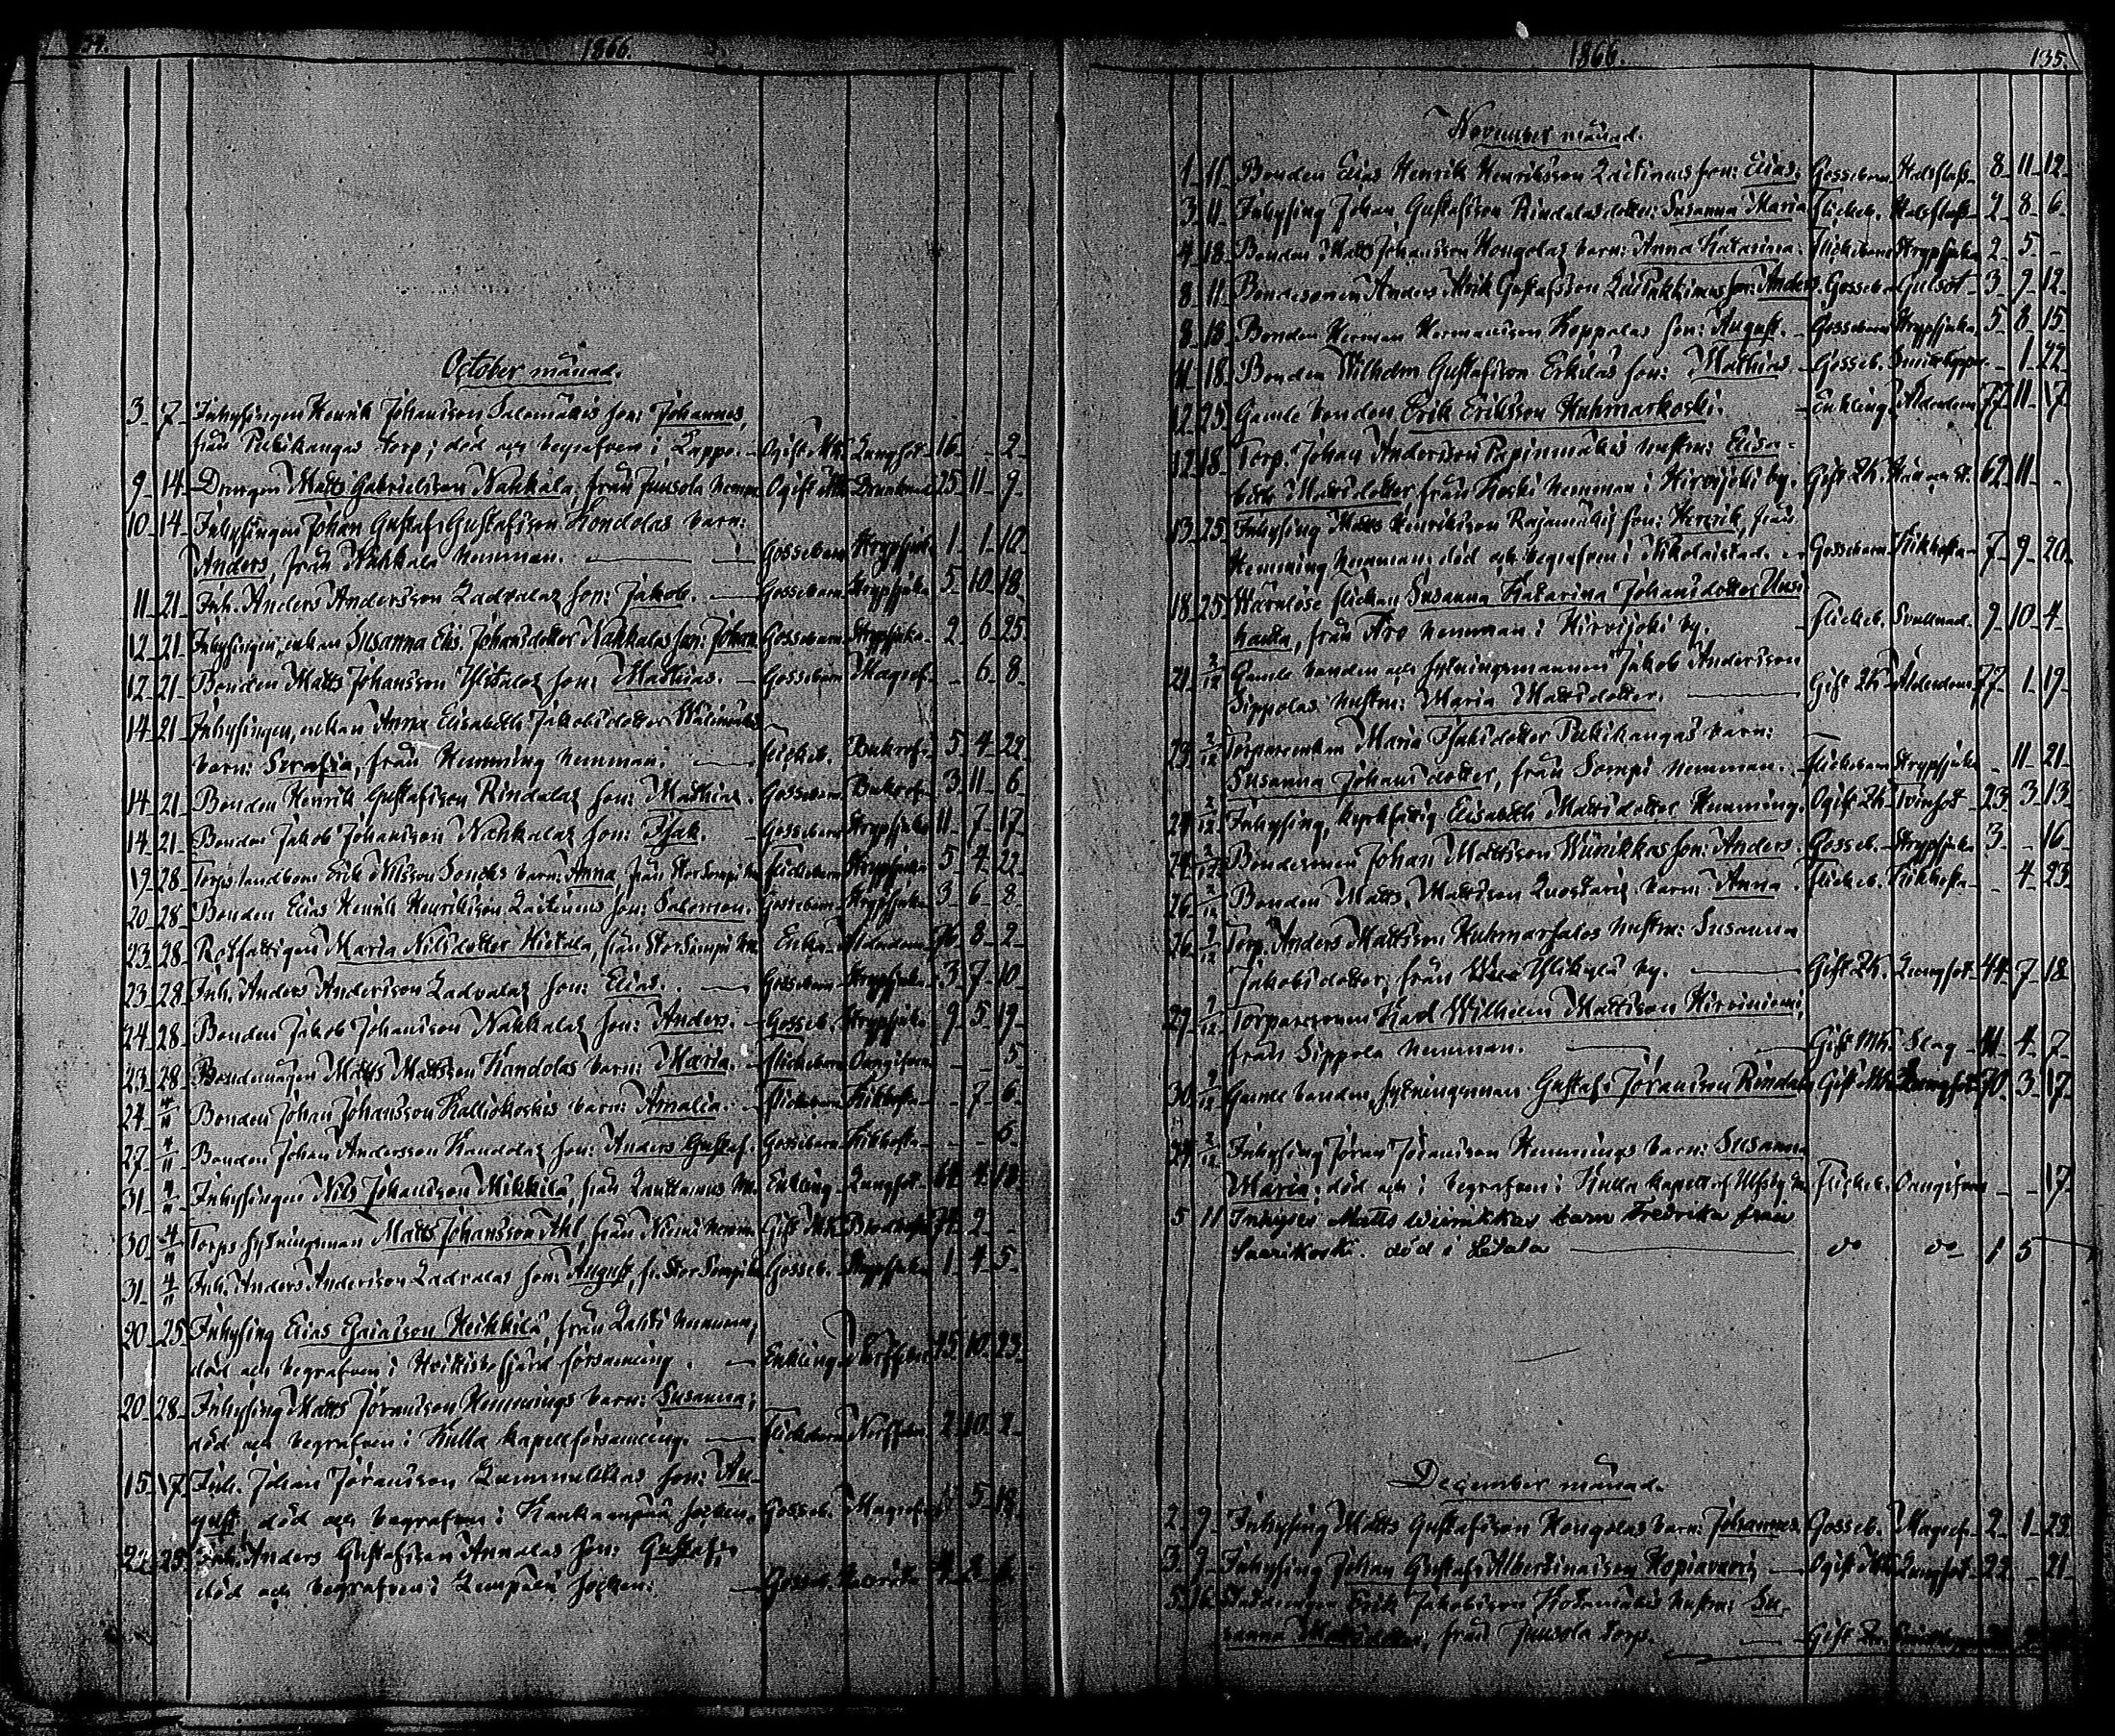 1866.
October månad.
3 7 Inhysingen Henrik Johansson Salomäkis son: Johannes,
från Pukkikangas torp; död och begrafven i Lappo. Ogift Mk. Lungsot 16 - 2
9 14 Drengen Matts Gabrielsson Nahkala, från Juusola hemm. Ogift Mk. Drunknad 25 11 9
10 14 Inhysingen Johan Gustaf Gustafsson Kondolas barn:
Anders, från Nahkala hemman. Gossebarn Strypsjuka 1 1 10
11 21 Inh. Anders Andersson Ladvalas son: Jakob. Gossebarn Strypsjuka 5 10 18
12 21 Inhysingen, enkan Susanna Elis. Johansdotter Nahkalas son: Johan Gossebarn Strypsjuka 2 6 25
12 21 Bonden Matts Johansson Ylitalos son: Mathias. Gossebarn Magref. - 6 8
14 21 Inhysingen, enkan Anna Elisabeth Jakobsdotter Välimäkis
barn: Serafia, från Hemming hemman. Flickeb. Bukref. 5 4 22
14 21 Bonden Henrik Gustafsson Rindalas son: Mathias. Gossebarn Bukref. 3 11 6
14 21 Bonden Jakob Johansson Nahkalas son: Isak. Gossebarn Strypsjuka 11 7 17
19 28 Torpslandbon Erik Nilsson Soncks barn: Anna, från Storsompi hm Flickebarn Strypsjuka 5 4 22
20 28 Bonden Elias Henrik Henriksson Laitinens son: Salomon. Gossebarn Strypsjuka 3 6 8
23 28 Rotfattigen Maria Nilsdotter Hietala, från Storsompi hm Enka Ålderdom 76 8 2
23 28 Inh. Anders Andersson Ladvalas son: Elias. Gossebarn Strypsjuka 3 7 10
24 28 Bonden Jakob Johansson Nahkalas son: Anders. Gosseb. Strypsjuka 9 5 19
23 28 Bondemågen Matts Mattsson Kandolas barn: Maria. Flickebarn Oangifven - - 5
24 4/11 Bonden Johan Johansson Kalliokoskis barn: Amalia. Flickebarn Kikhosta - 7 6
27 4/11 Bonden Johan Andersson Kandolas son: Anders Gustaf. Gossebarn Kikhosta - - 6
31 4/11 Inhysingen Nils Johansson Mikkilä, från Lauttamus hm. Enkling Lungsot 64 4 18
30 4/11 Torps sytningsman Matts Johansson Ahl, från Niemi hemm Gift Mk. 74 2 -
31 4/11 Inh. Anders Andersson Ladvalas son: August, fr. Stor Sompi hm Gosseb. Strypsjuka 1 4 5
20 25 Inhysing Elias Esaiasson Heikkilä, från Lahti hemman,
död och begrafven i Hvittisbofjärd församling. Enkling 45 10 23
20 28 Inhysing Matts Jöransson Hemmings barn: Susanna;
död och begrafven i Kulla kapellförsamling. Flickebarn 2 10 2
15 17 Inh. Johan Jöransson Lummukkas son: Au-
gust, död och begrafven i Kankaanpää socken. Gosseb. Magref. 5
22 28 Inh. Anders Gustafsson Annalas son: Gustaf,
död och begrafven i Lempälä socken. Gosseb.
1866. 135.
November månad.
1 11 Bonden Elias Henrik Henriksson Laitinens son: Elias. Gossebarn Halsfluss 8 11 12
3 11 Inhysing Johan Gustafsson Rindalas dotter: Susanna Maria Flickeb. Halsfluss 2 8 6
4 18 Bonden Matts Johansson Kongolas barn: Anna Katarina. Flickebarn Strypsjuka 2 5 -
8 11 Bondesonen Anders Erik Gustafsson son: Anders. Gosseb. Gulsot 3 9 12
8 18 Bonden Herman Hermansson Koppelas son: August. Gossebarn Strypsjuka 5 8 15
11 18 Bonden Wilhelm Gustafsson Erkilas son: Mathias. Gosseb. - 1 22
12 25 Gamle bonden Erik Eriksson Kuhmarkoski. Enkling Ålderdom 77 11 17
12 18 Torp. Johan Andersson Papinmäkis hustru: Elisa-
beth Mattsdotter från Koski hemman i Hirvijoki by. Gift Qk. 62 11 -
13 25 Inhysing Matts Henriksson Rajamäkis son: Henrik, från
Hemming hemman, död och begrafven i Nikolaistad. Gossebarn Kikhosta 7 9 20
18 25 Wärnlöse flickan Susanna Katarina Johansdotter Uusi
hauta, från Aro hemman i Hirvijoki by. Flickeb. Svullnad 9 10 4
21 2/12 Gamle bonden och sytningsmannen Jakob Andersson
Sippolas hustru: Maria Mattsdotter. Gift Qk. Ålderdom 77 1 19
23 2/12 Torpareenkan Maria Isaksdotter Pukkikangas barn:
Susanna Johansdotter, från Sompi hemman. Flickebarn Strypsjuka - 11 21
24 2/12 Inhysing, kyrkfattig Elisabeth Mattsdotter Hemming. Ogift Qk. Tvinsot 23 3 13
24 2/12 Bondesonen Johan Mattsson Wiinikkas son: Anders. Gosseb. Strypsjuka 3 - 16
26 2/12 Bonden Matts Mattsson Luostaris barn: Anna. Flickeb. Kikhosta - 4 23
26 2/12 Torp. Anders Mattsson Kuhmasalos hustru: Susanna
Jakobsdotter, från Ylikylä by. Gift Qk. Lungsot 44 7 18
29 2/12 Torparesonen Karl Wilhelm Mattsson Hirviniemi,
från Sippola hemman. Gift Mk. Slag 41 4 7
30 2/12 Gamle bonden, sytningsman Gustaf Jöransson Rindala Gift Mk. Lungsot 70 3 17
29 2/12 Inhysing Jöran Jöransson Hemmings barn: Susanna
Maria; död och begrafven i Kulla kapell af Ulfsby Flickeb. Oangifven - - 17
5 11 Inhyses Matts Wiinikkas barn Fredrika från
Saarikoski. död i Letala do do 1 5
December månad.
2 9 Inhysing Matts Gustafsson Kongolas barn: Johannes. Gosseb. Magref. 2 1 23
3 9 Inhysing Johan Gustaf Albertinasson Kopiavuori Ogift Mk. Lungsot 22 - 21
5 16 Erik Jakobsson Kotamäkis hustru: Su-
sanna Mattsdotter, från Juusola torp. Gift Qk.